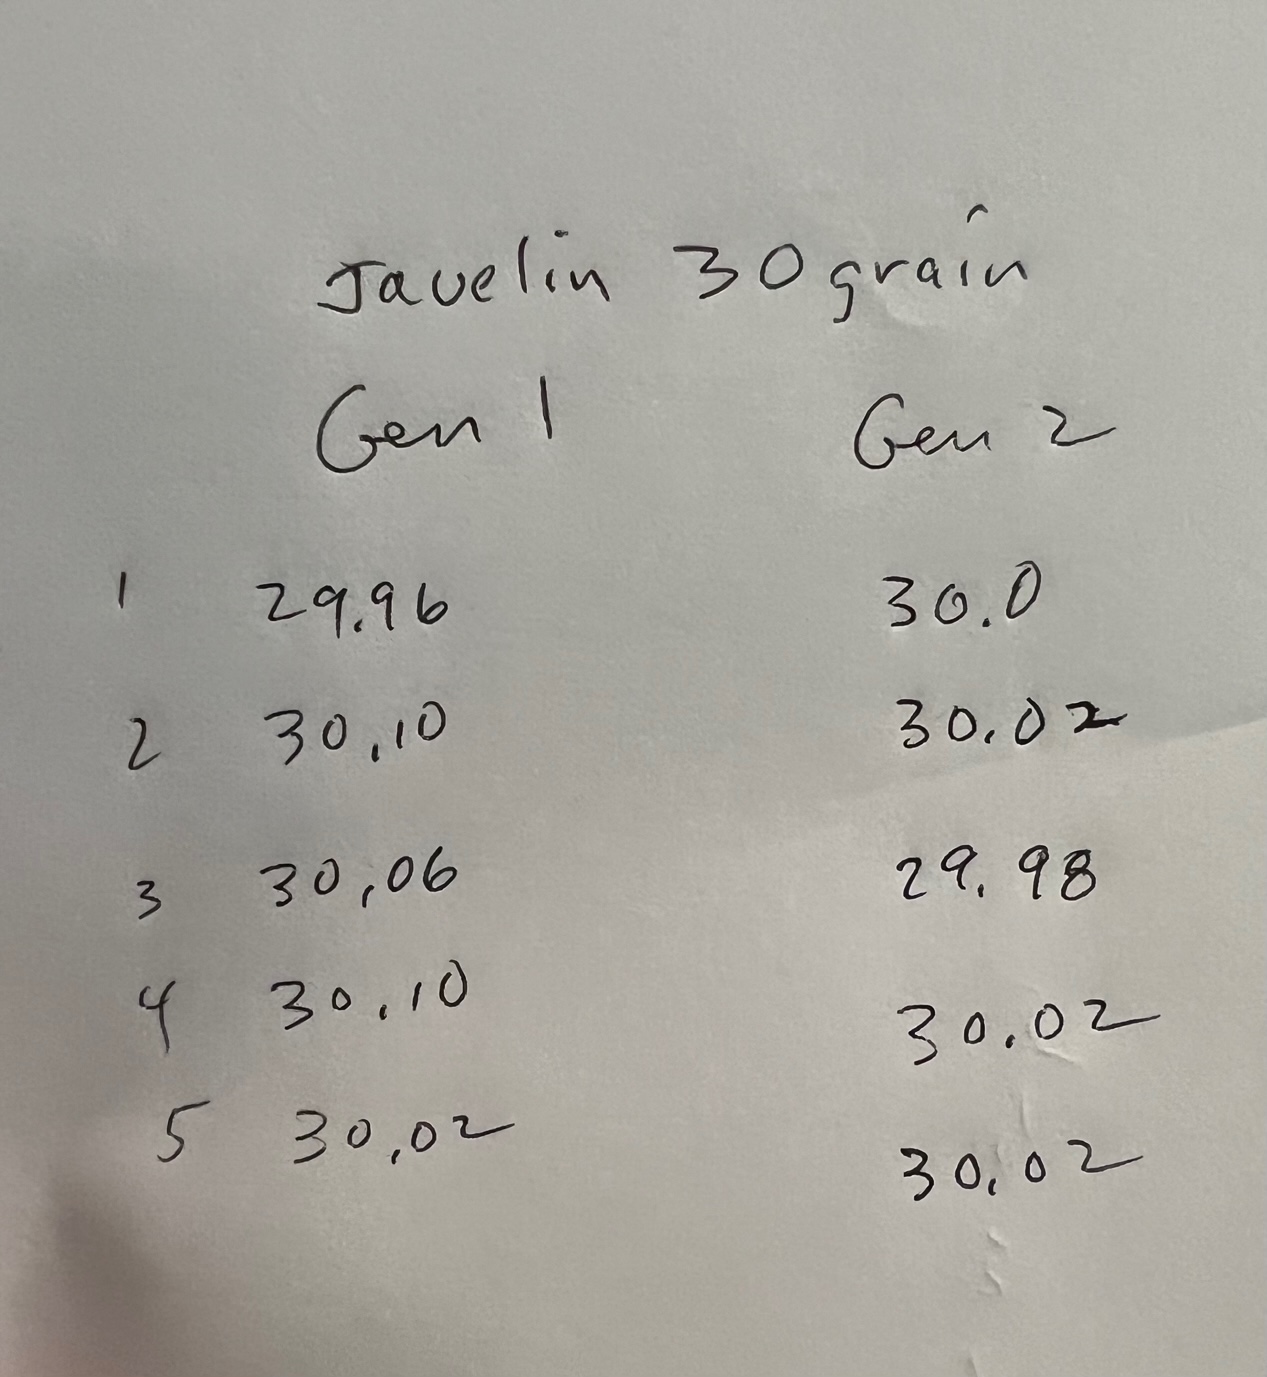 Javelin 30 grain
Gen 1 Gen 2
1 29.96 30.0
2 30.10 30.02
3 30.06 29.98
4 30.10 30.02
5 30.02 30.02